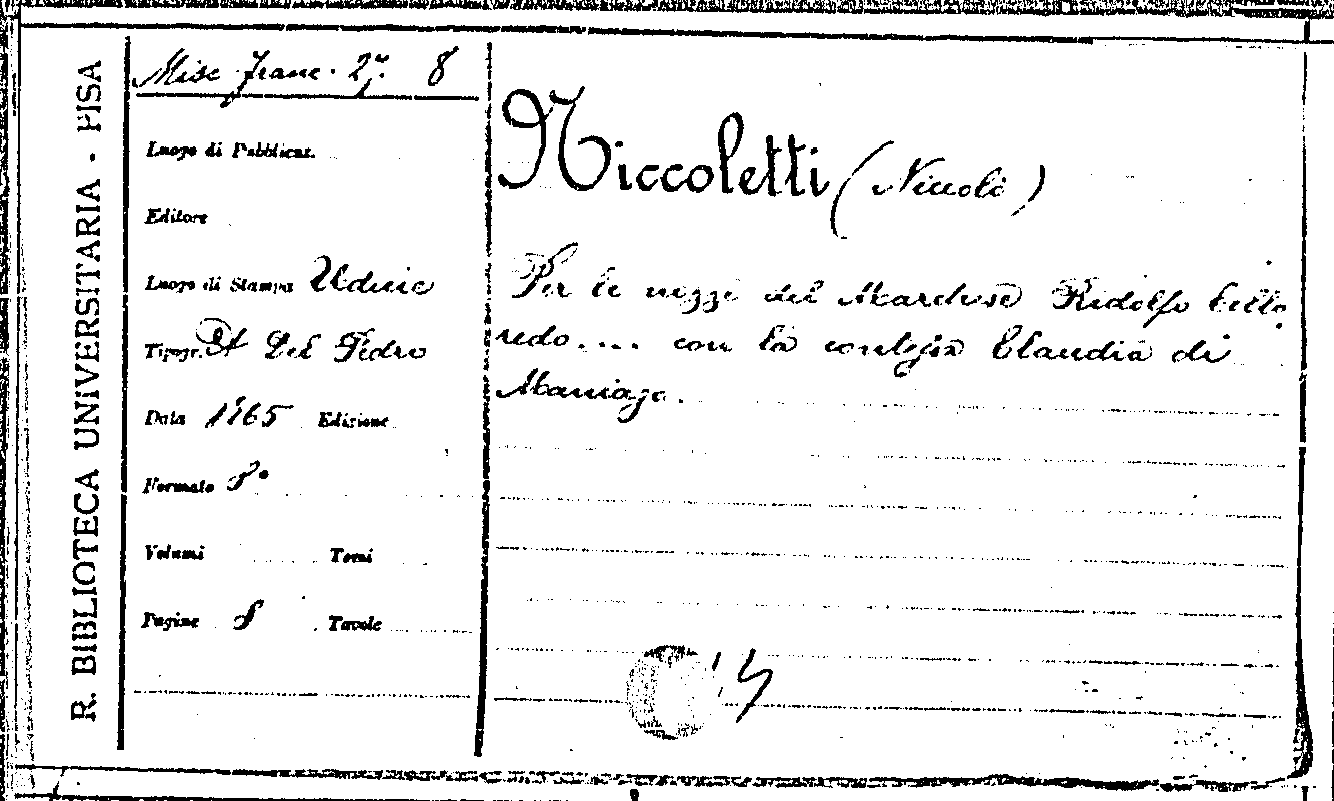 R. BIBLIOTECA UNIVERSITARIA - PISA
Misc Franc. 27. 8
Luogo di Pubblicaz.
Editore
Luogo di Stampa Udine
Tipogr. Del Pedro
Data Edizione
Formato 8°
Volumi Tomi
Pagine 8 Tavole
Niccoletti (Niccolò)
Per le nozze del Marchese Ridolfo Collo
redo.... con la contessa Claudia di
Maniago.